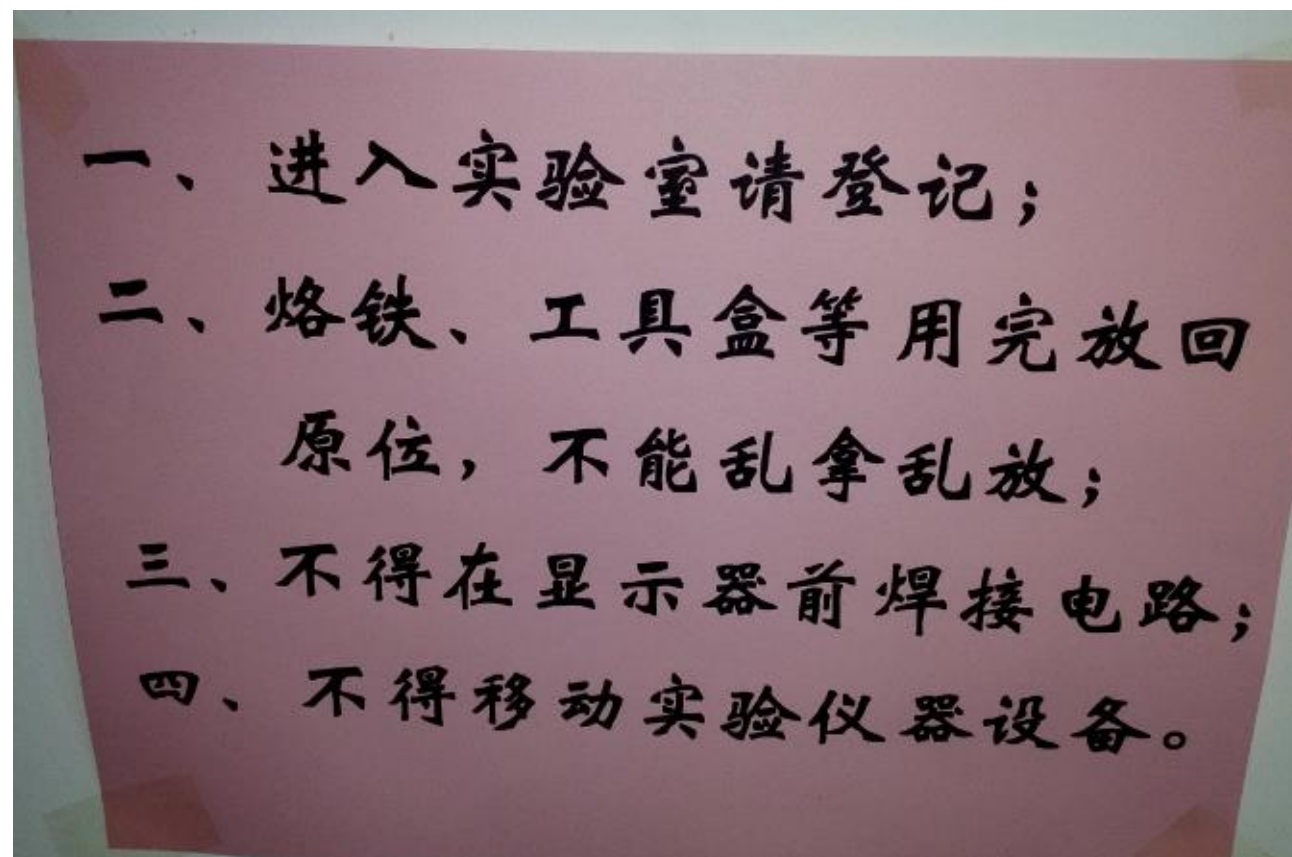 一、进入实验室请登记；
二、烙铁、工具盒等用完放回
原位，不能乱拿乱放；
三、不得在显示器前焊接电路；
四、不得移动实验仪器设备。